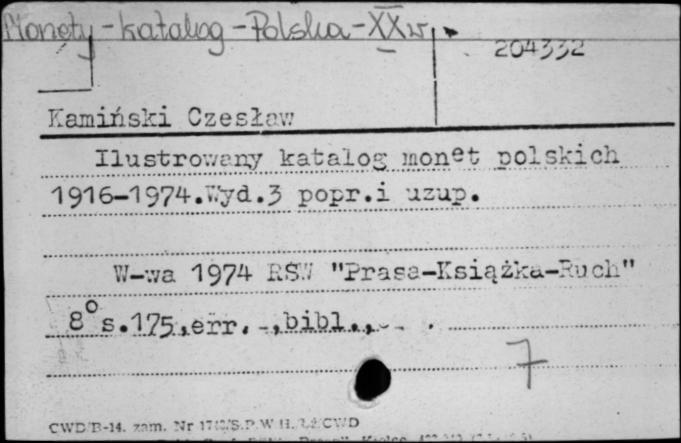 Monety - katalog - Polska - XX w.
204332
Kamiński Czesław
Ilustrowany katalog monet polskich
1916-1974.Wyd.3 popr.i uzup.
W-wa 1974 RSW "Prasa-Książka-Ruch"
8° s.175,err. -,bibl.,
7
CWD/B-14. zam. Nr